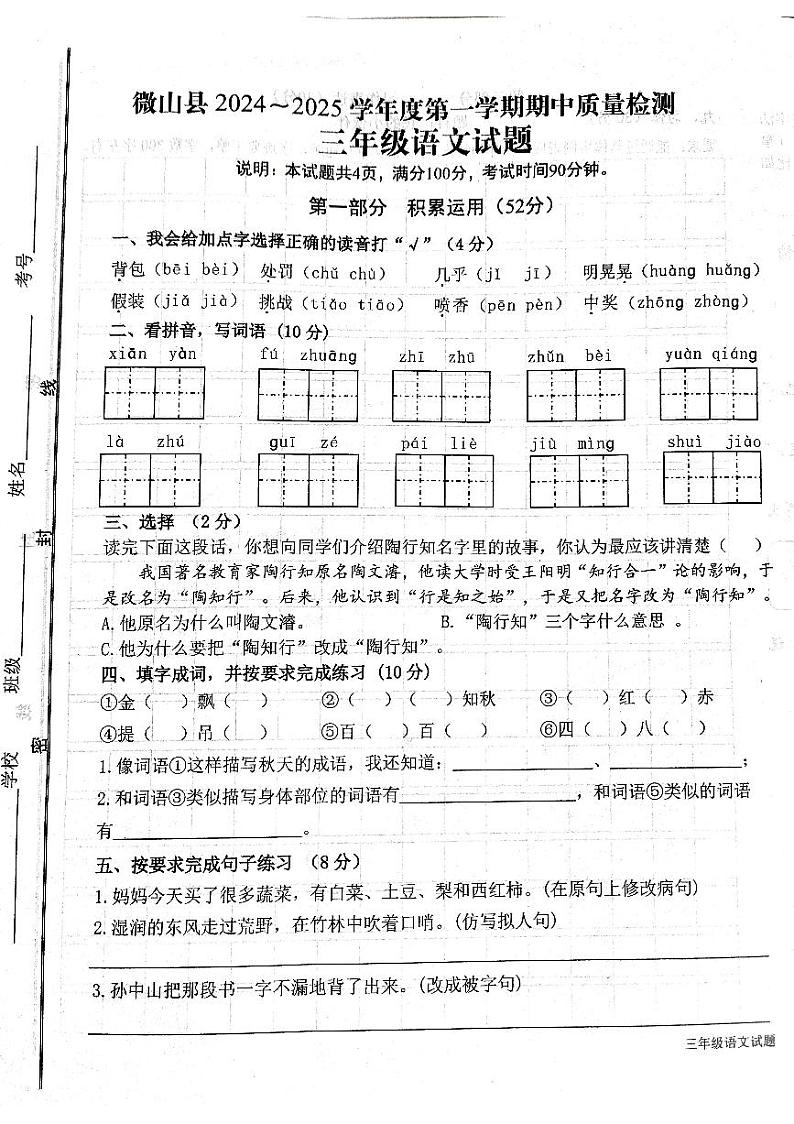 微山县2024～2025学年度第一学期期中质量检测
三年级语文试题
说明：本试题共4页，满分100分，考试时间90分钟。
第一部分 积累运用（52分）
一、我会给加点字选择正确的读音打“√”（4分）
背包（bēi bèi） 处罚（chǔ chù） 几乎（jǐ jī） 明晃晃（huàng huǎng）
假装（jiǎ jià） 挑战（tiǎo tiāo） 喷香（pēn pèn） 中奖（zhōng zhòng）
二、看拼音，写词语（10分）
xiān yàn fú zhuāng zhī zhū zhǔn bèi yuàn qiáng
là zhú guī zé pái liè jiù mìng shuì jiào
三、选择（2分）
读完下面这段话，你想向同学们介绍陶行知名字里的故事，你认为最应该讲清楚（ ）
我国著名教育家陶行知原名陶文濬，他读大学时受王阳明“知行合一”论的影响，于
是改名为“陶知行”。后来，他认识到“行是知之始”，于是又把名字改为“陶行知”。
A.他原名为什么叫陶文濬。 B.“陶行知”三个字什么意思 。
C.他为什么要把“陶知行”改成“陶行知”。
四、填字成词，并按要求完成练习（10分）
①金（ ）飘（ ） ②（ ）（ ）知秋 ③（ ）红（ ）赤
④提（ ）吊（ ） ⑤百（ ）百（ ） ⑥四（ ）八（ ）
1.像词语①这样描写秋天的成语，我还知道：、；
2.和词语③类似描写身体部位的词语有，和词语⑤类似的词语
有。
五、按要求完成句子练习 （8分）
1.妈妈今天买了很多蔬菜，有白菜、土豆、梨和西红柿。(在原句上修改病句)
2.湿润的东风走过荒野，在竹林中吹着口哨。(仿写拟人句)
3.孙中山把那段书一字不漏地背了出来。(改成被字句)
三年级语文试题
考号
姓名
班级
学校
线
封
密